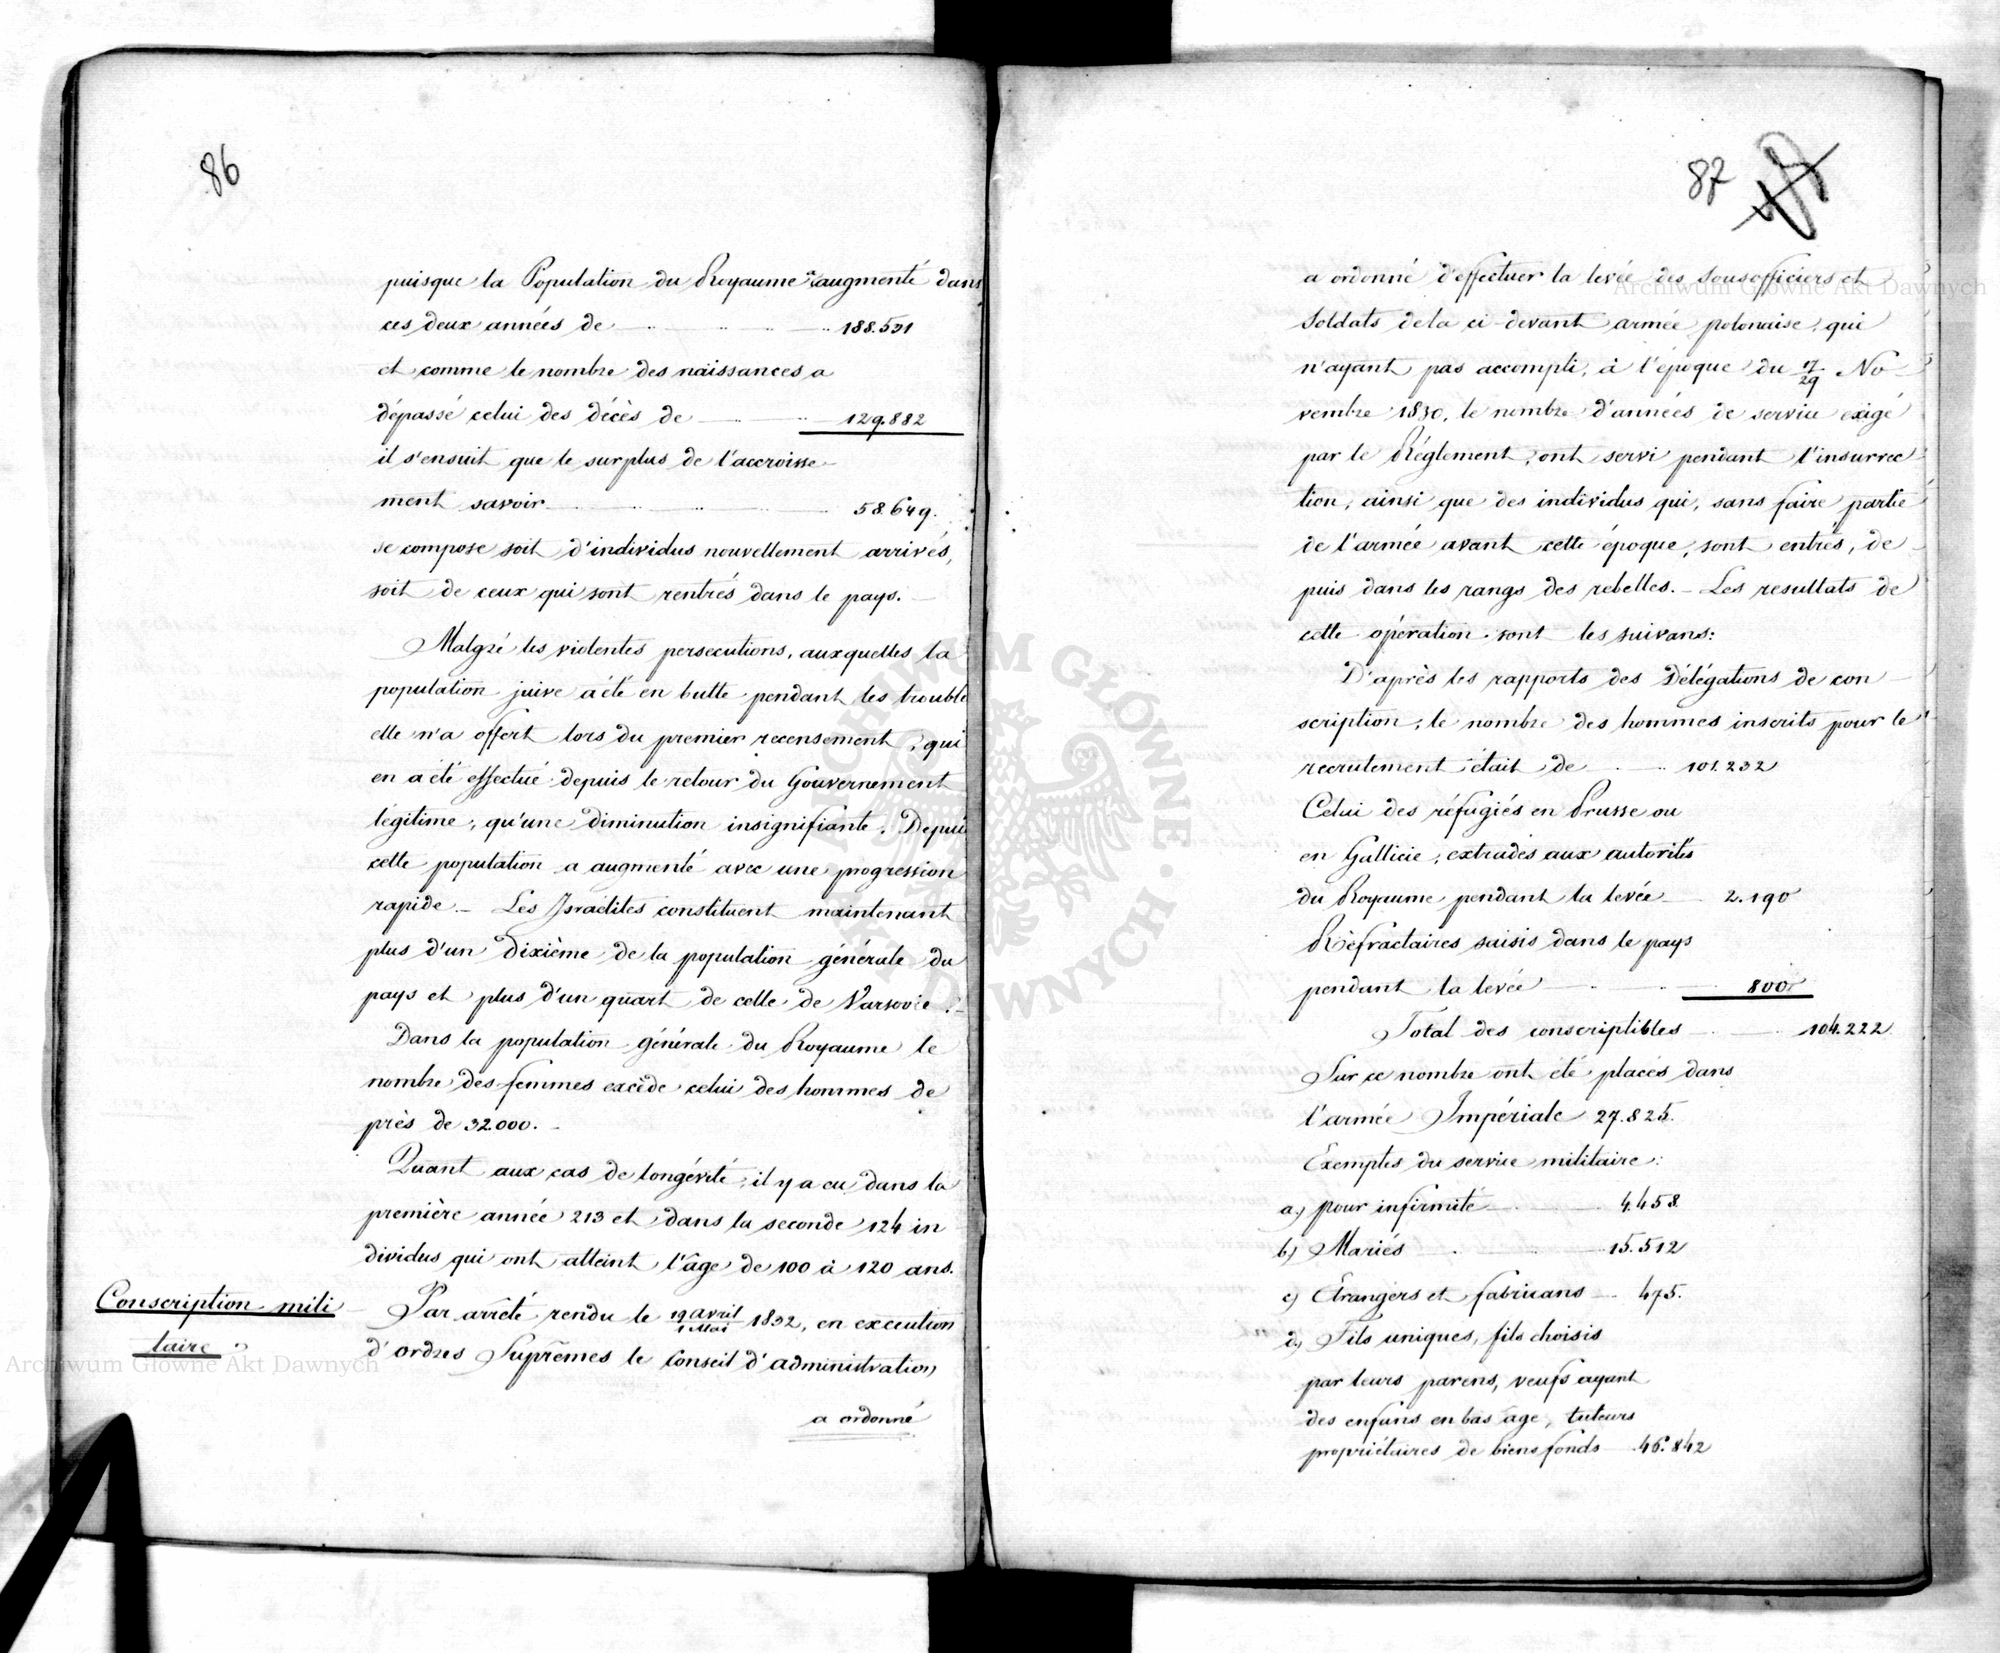 86
puisque la Population du Royaume a augmenté dans
ces deux années de 188.531
et comme le nombre des naissances a
dépassé celui des décès de 129.882
il s'ensuit que le surplus de l'accroisse-
ment savoir 58.649.
se compose soit d'individus nouvellement arrivés,
soit de ceux qui sont rentrés dans le pays. -
Malgré les violentes persecutions, auxquelles la
population juive a été en butte pendant les trouble
elle n'a offert lors du premier recensement, qui
en a été effectué depuis le retour du Gouvernement
légitime, qu'une diminution insignifiante. Depuis
cette population a augmenté avec une progression
rapide. - Les Israélites constituent maintenant
plus d'un dixième de la population générale du
pays et plus d'un quart de celle de Varsovie. -
Dans la population générale du Royaume le
nombre des femmes excède celui des hommes de
près de 32.000. -
Quant aux cas de longévité, il y a eu dans la
première année 213 et dans la seconde 124 in
dividus qui ont atteint l'âge de 100 à 120 ans.
Conscription mili
taire.
Par arrêté rendu le 19 avril / 1 Mai 1832, en execution
d'ordres Suprêmes le Conseil d'administration
a ordonné
87
a ordonné d'effectuer la levée des Sousofficiers et
Soldats de la ci-devant armée polonaise, qui
n'ayant pas accompli, à l'époque du 17/29 No-
vembre 1830, le nombre d'années de service exigé
par le Réglement, ont servi pendant l'insurrec
tion, ainsi que des individus qui, sans faire partie
de l'armée avant cette époque, sont entrés, de-
puis dans les rangs des rebelles. - Les resultats de
cette opération sont les suivans:
D'après les rapports des Délégations de con-
scription, le nombre des hommes inscrits pour le
recrutement était de 101.232
Celui des réfugiés en Prusse ou
en Gallicie, extradés aux autorités
du Royaume pendant la levée 2.190
Réfractaires saisis dans le pays
pendant la levée 800
Total des conscriptibles 104.222
Sur ce nombre ont été placés dans
l'armée Impériale 27.825.
Exemptés du service militaire:
a) pour infirmité 4.458
b) Mariés 15.512
c) Etrangers et fabricans 475.
d) Fils uniques, fils choisis
par leurs parens, veufs ayant
des enfans en bas age, tuteurs
propriétaires de biens fonds 46.842
Archiwum Główne Akt Dawnych
Archiwum Główne Akt Dawnych
ARCHIWUM GŁÓWNE AKT DAWNYCH